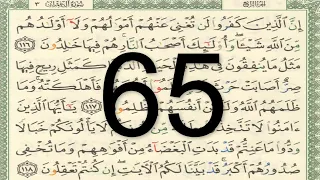 إِنَّ ٱلَّذِينَ كَفَرُوا۟ لَن تُغْنِىَ عَنْهُمْ أَمْوَٰلُهُمْ وَلَآ أَوْلَٰدُهُم
مِّنَ ٱللَّهِ شَيْـًٔا وَأُو۟لَٰٓئِكَ أَصْحَٰبُ ٱلنَّارِ هُمْ فِيهَا خَٰلِدُونَ ١١٦
مَثَلُ مَا يُنفِقُونَ فِى هَٰذِهِ ٱلْحَيَوٰةِ ٱلدُّنْيَا كَمَثَلِ رِيحٍ فِيهَا
صِرٌّ أَصَابَتْ حَرْثَ فَأَهْلَكَتْهُ وَمَا
ظَلَمَهُمُ ٱللَّهُ أَنفُسَهُمْ ١١٧ يَٰٓأَيُّهَا ٱلَّذِينَ
ءَامَنُوا۟ لَا تَتَّخِذُوا۟ لَا يَأْلُونَكُمْ خَبَالًا
وَدُّوا۟ مَا عَنِتُّمْ قَدْ بَدَتِ ٱلْبَغْضَآءُ مِنْ أَفْوَٰهِهِمْ وَمَا تُخْفِى
صُدُورُهُمْ أَكْبَرُ قَدْ بَيَّنَّا لَكُمُ ٱلْـَٔايَٰتِ إِن كُنتُمْ تَعْقِلُونَ ١١٨
65